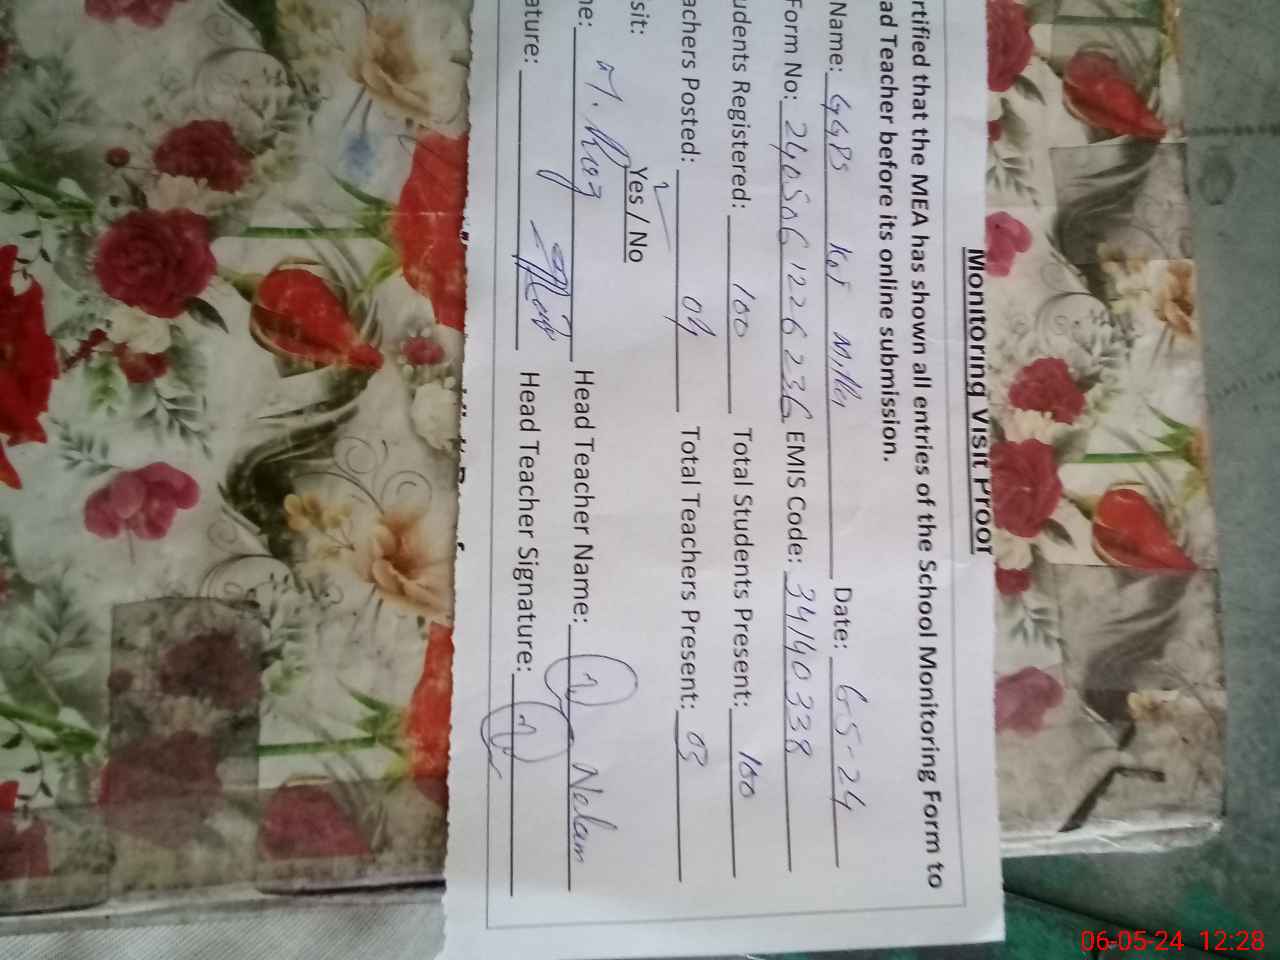 Monitoring Visit Proof
rtified that the MEA has shown all entries of the School Monitoring Form to
ad Teacher before its online submission.
Name: GGPS Kot Date: 6-5-24
Form No: 2405061226236 EMIS Code: 34140338
udents Registered: 100 Total Students Present: 100
achers Posted: 04 Total Teachers Present: 03
sit: Yes / No
ne: Head Teacher Name: Nelam
ature: Head Teacher Signature:
06-05-24 12:28